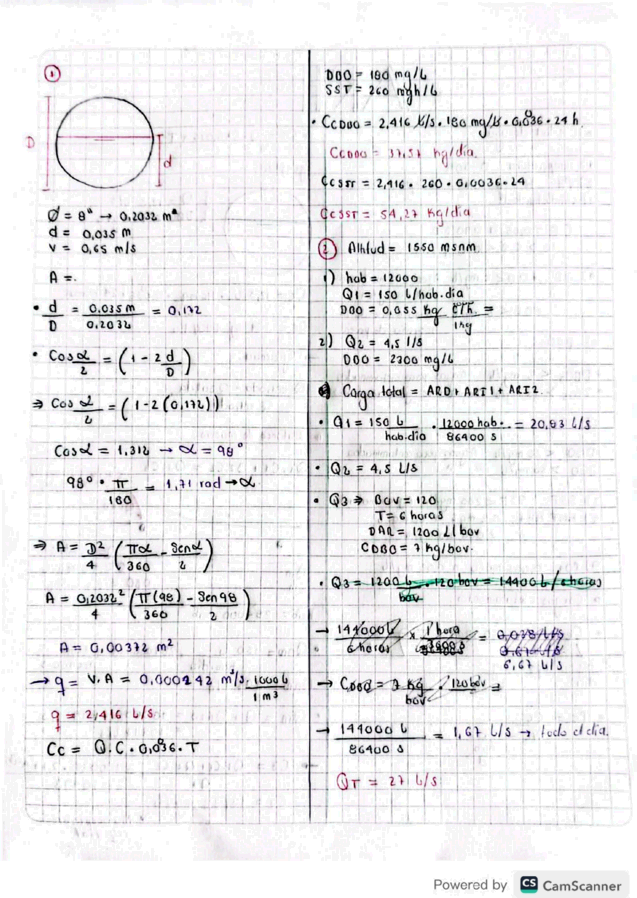 ①
D
d
Ø = 8" → 0,2032 m
d = 0,035 m
V = 0,65 m/s
A =
• d/D = 0,035 m / 0,2032 = 0,172
• Cos α/2 = (1 - 2 d/D)
⇒ Cos α/2 = (1 - 2 (0,172))
Cos α = 1,312 → α = 98°
98° • π/180 = 1,71 rad → α
⇒ A = D²/4 (πα/360 - Sen α/2)
A = 0,2032²/4 (π(98)/360 - Sen 98/2)
A = 0,00372 m²
→ q = V.A = 0,000242 m³/s . 1000 L / 1 m³
q = 2,416 L/s
Cc = Q.C.0,036.T
DBO = 180 mg/L
SST = 260 mg/L
• CcDBO = 2,416 L/s . 180 mg/L . 0,036 . 24 h
CcDBO = 37,57 kg/dia
CcSST = 2,416 . 260 . 0,0036 . 24
CcSST = 54,27 kg/dia
② Altitud = 1550 msnm
1) hab = 12000
Q1 = 150 L/hab.dia
DBO = 0,055 kg
1kg
2) Q2 = 4,5 l/s
DBO = 2300 mg/L
Carga total = ARD + ARI1 + ARI2
• Q1 = 150 L / hab.dia . 12000 hab. / 86400 s = 20,83 L/s
• Q2 = 4,5 L/s
• Q3 ⇒ Bov = 120
T = 6 horas
DAR = 1200 L/bov
CDBO = 7 kg/bov.
• Q3 = 1200 L / bov . 120 bov = 14400 L/6 horas
→ 144000 L / 6 horas × 1 hora / 3600 s = 6,67 L/s
→ CDBO = 7 kg / bov . 120 bov =
→ 144000 L / 86400 s = 1,67 L/s → todo el dia.
QT = 27 L/s
Powered by CS CamScanner